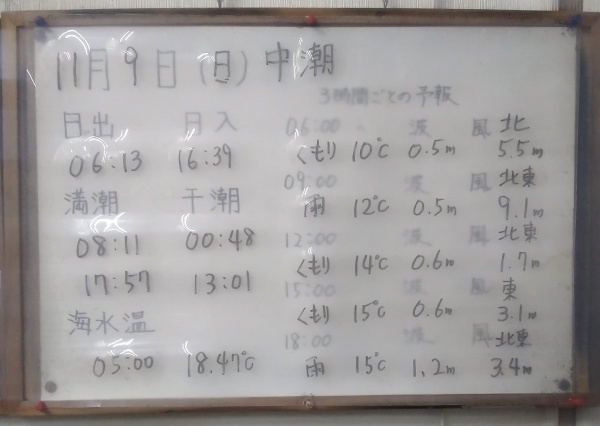 11月9日(日) 中潮
3時間ごとの予報
日出 日入
06:13 16:39
満潮 干潮
08:11 00:48
17:57 13:01
海水温
05:00 18.47℃
06:00 波 風 北
くもり 10℃ 0.5m 5.5m
09:00 波 風 北東
雨 12℃ 0.5m 9.1m
12:00 波 風 北東
くもり 14℃ 0.6m 1.7m
15:00 波 風 東
くもり 15℃ 0.6m 3.1m
18:00 波 風 北東
雨 15℃ 1.2m 3.4m